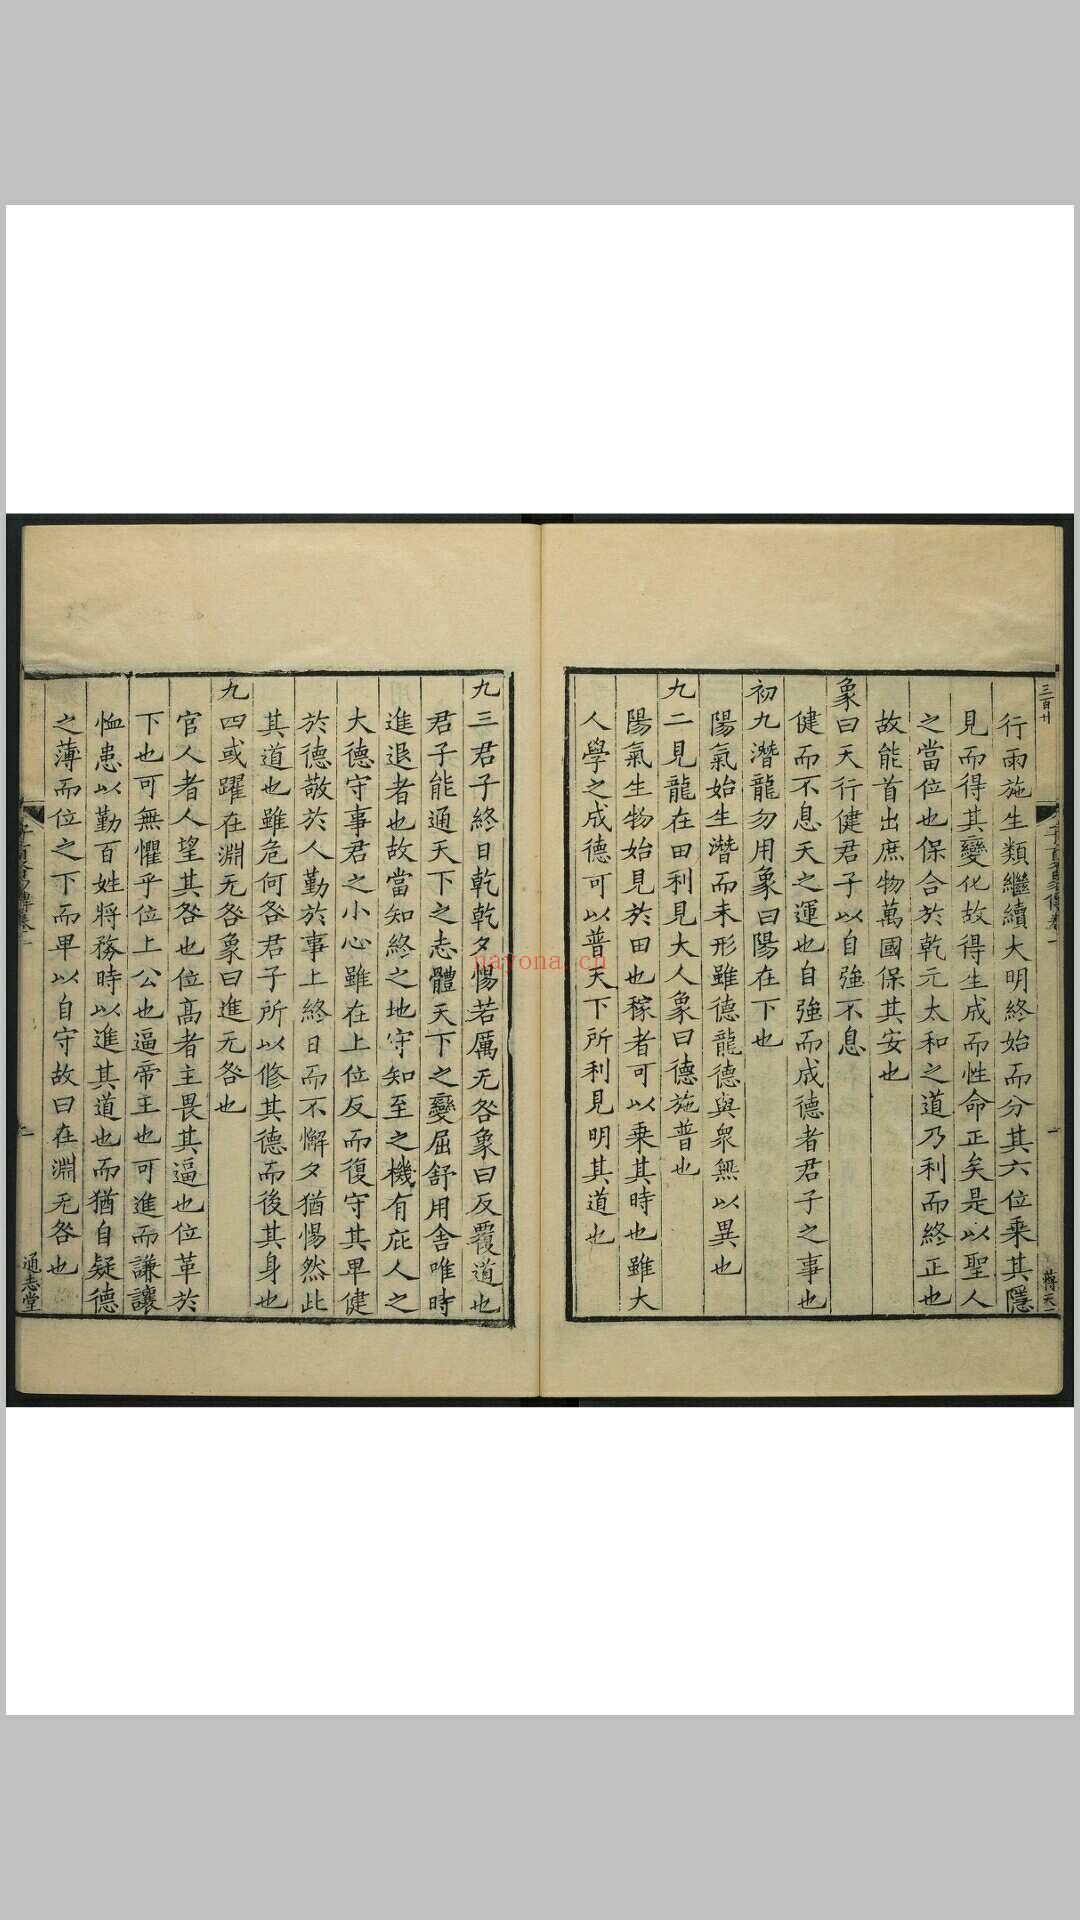 三百廿
蔣天一
行雨施生類繼續大明終始而分其六位乘其隱
見而得其變化故得生成而性命正矣是以聖人
之當位也保合於乾元太和之道乃利而終正也
故能首出庶物萬國保其安也
象曰天行健君子以自強不息
健而不息天之運也自強而成德者君子之事也
初九潛龍勿用象曰陽在下也
陽氣始生潛而未形雖德龍德與衆無以異也
九二見龍在田利見大人象曰德施普也
陽氣生物始見於田也稼者可以乘其時也雖大
人學之成德可以普天下所利見明其道也
九三君子終日乾乾夕惕若厲无咎象曰反覆道也
君子能通天下之志體天下之變屈舒用舍唯時
進退者也故當知終之地守知至之機有庇人之
大德守事君之小心雖在上位反而復守其卑健
於德敬於人勤於事上終日而不懈夕猶惕然此
其道也雖危何咎君子所以修其德而後其身也
九四或躍在淵无咎象曰進无咎也
官人者人望其咎也位高者主畏其逼也位革於
下也可無懼乎位上公也逼帝王也可進而謙讓
恤患以勤百姓將務時以進其道也而猶自疑德
之薄而位之下而卑以自守故曰在淵无咎也
通志堂
nayona.cn